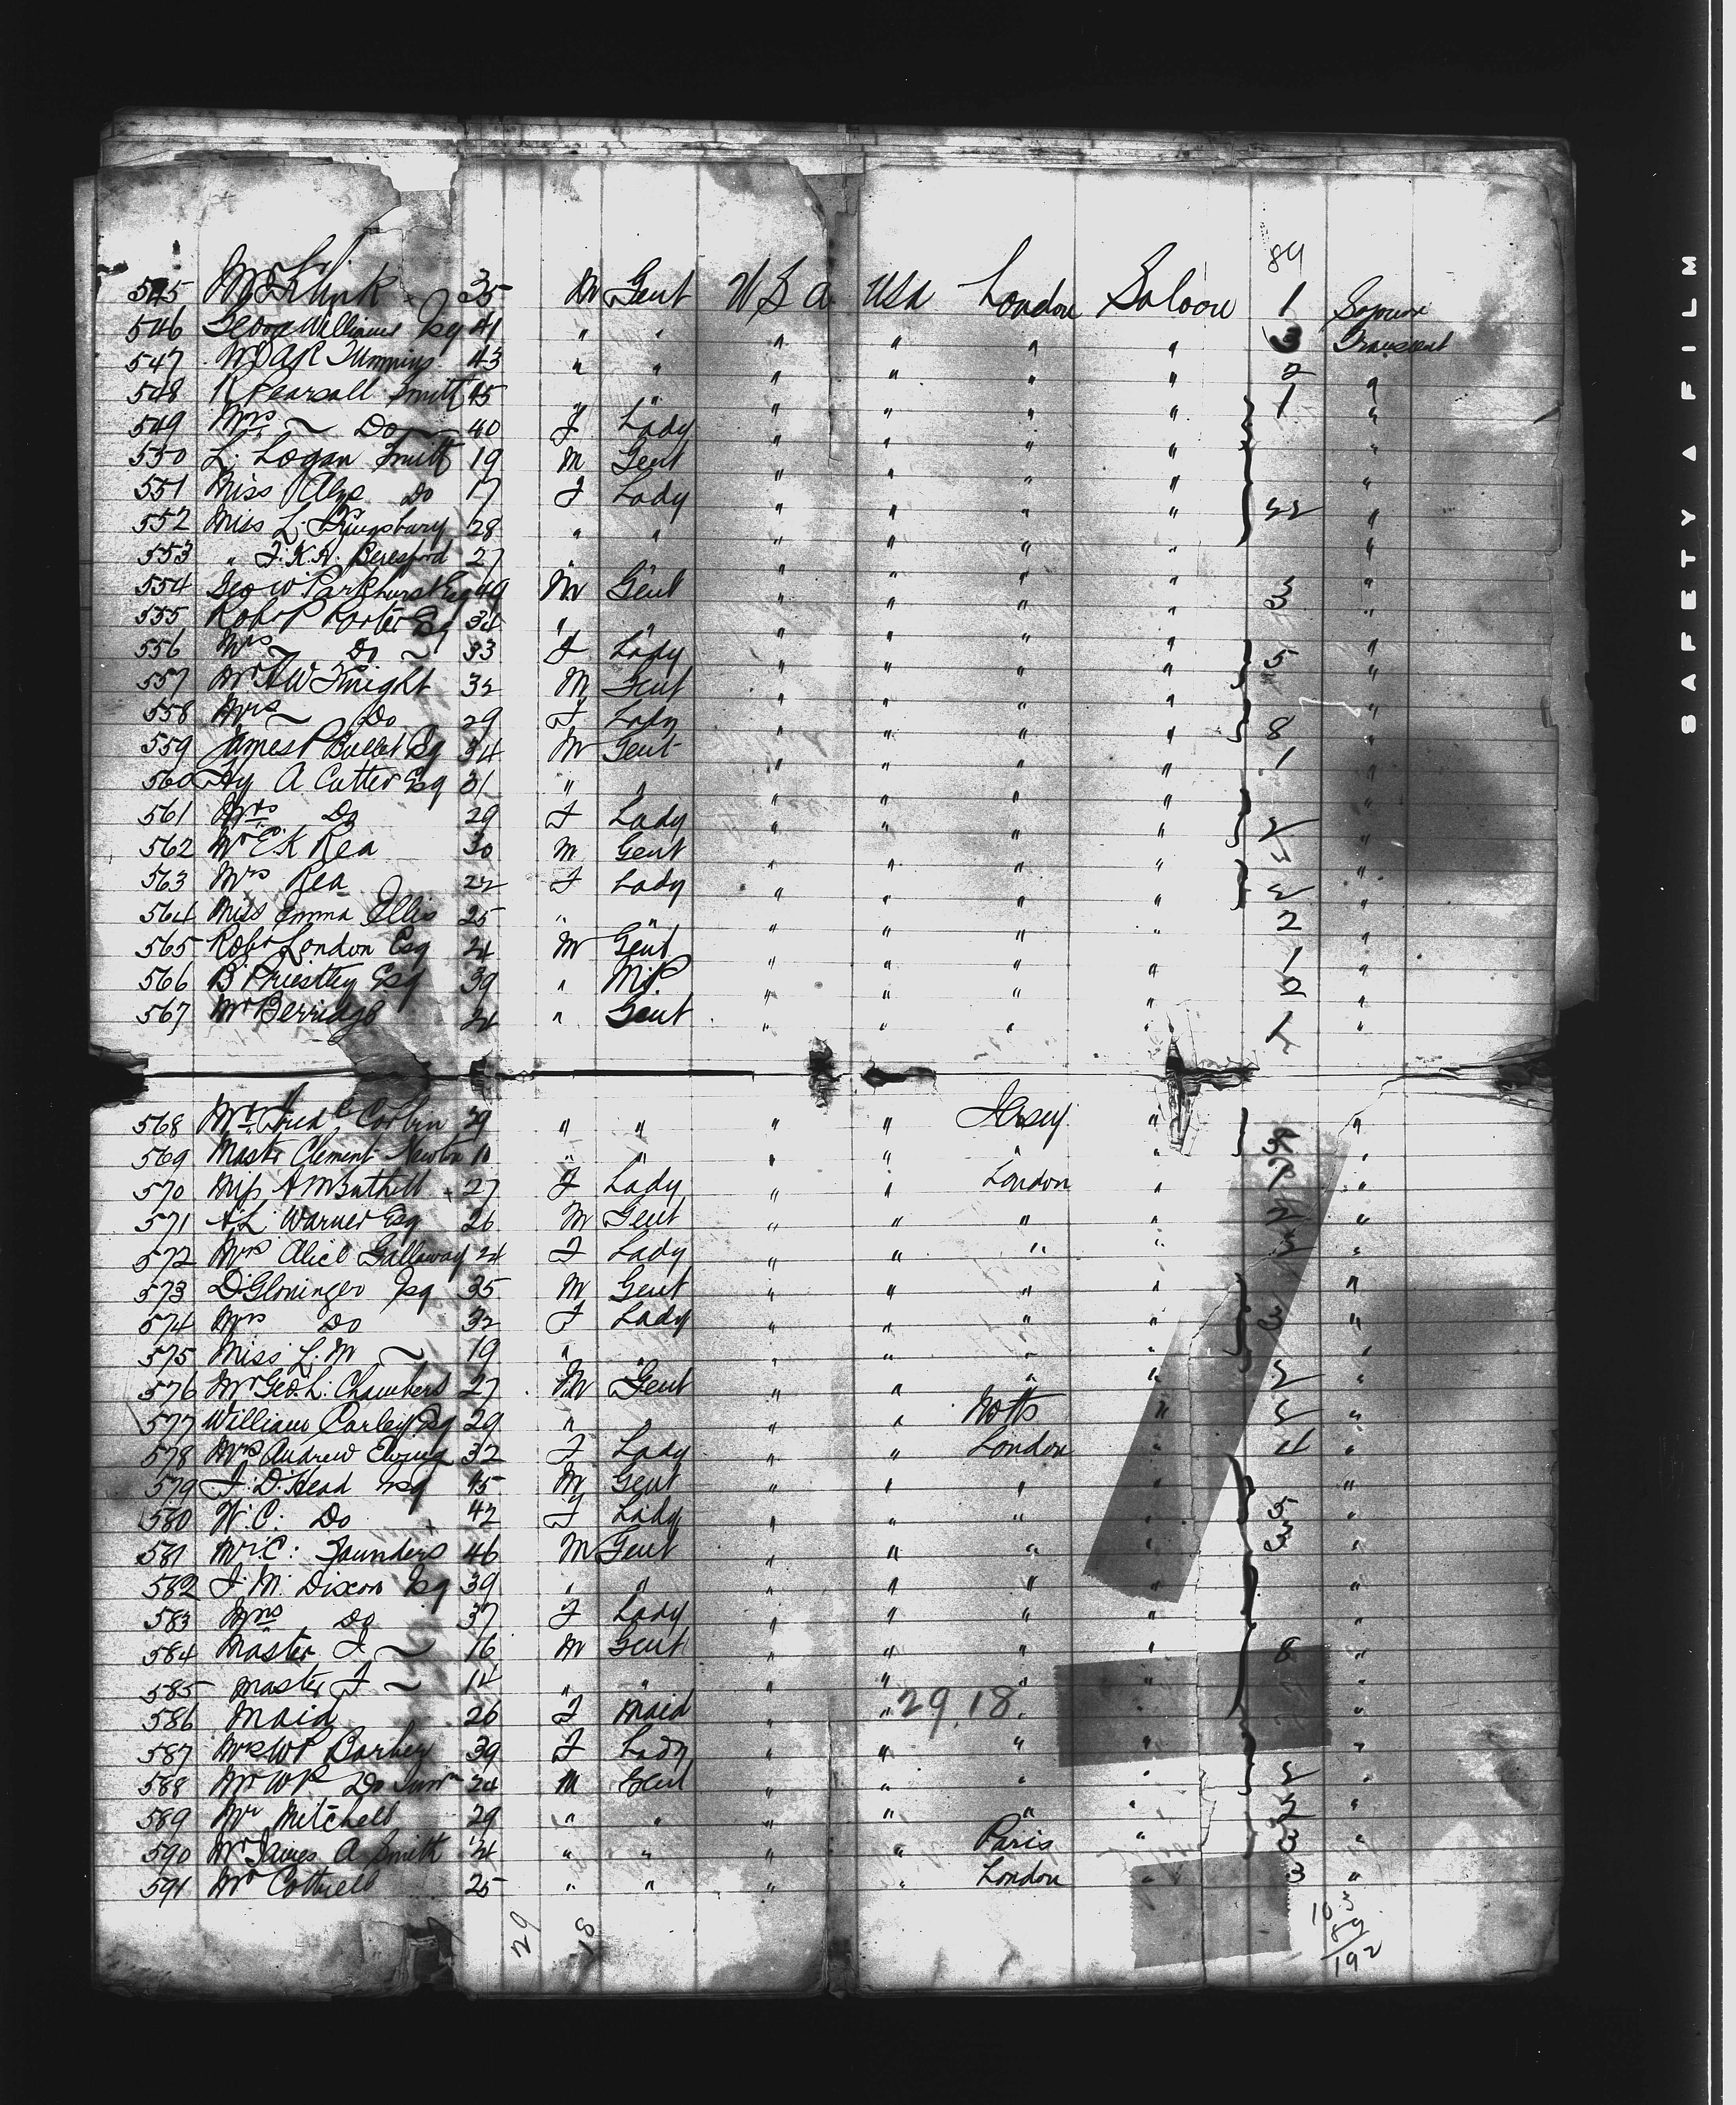 84
545 Mr Klink 35 M Gent U S A USA London Saloon 1 Sojourn
546 George Williams Esq 41 " " " " " " 3 Transient
547 43 " " " " " " 2 "
548 R Pearsall Smith 45 " " " " " " 1 "
549 Mrs ~ Do 40 F Lady " " " " "
550 L. Logan Smith 19 M Gent " " " " "
551 Miss Alys Do 17 F Lady " " " " "
552 Miss L. Kingsbury 28 " " " " " " "
553 " F.K.H. Beresford 27 " " " " " " "
554 Geo W Parkhurst Esq 49 M Gent " " " " 3 "
555 Robt P Porter Esq 34 " " " " " " "
556 Mrs ~ Do ~ 33 F Lady " " " " 5 "
557 Mr A W Knight 32 M Gent " " " " "
558 Mrs ~ Do 29 F Lady " " " " 8 "
559 James P Bullet Esq 34 M Gent " " " " 1 "
560 Hy A Cutter Esq 31 " " " " " " "
561 Mrs Do 29 F Lady " " " " 2 "
562 Mr E.K Rea 30 M Gent " " " " "
563 Mrs Rea 22 F Lady " " " " "
564 Miss Emma Ellis 25 " " " " " " 2 "
565 Robt London Esq 24 M Gent " " " " 1 "
566 B Priestley Esq 39 " M.P. " " " " 2 "
567 Mr Berridge 24 " Gent " " " " 1 "
568 Mr Fredc Corbin 29 " " " " Jersey "
569 Master Clement Newton 10 " " " " " " "
570 Miss A M 27 F Lady " " London " "
571 A.L. Warner Esq 26 M Gent " " " " 2 "
572 Mrs Alice Gallaway 24 F Lady " " " " "
573 D Gloninger Esq 35 M Gent " " " " "
574 Mrs Do 32 F Lady " " " " 3 "
575 Miss L. M ~ 19 " " " " " " "
576 Mr Geo. L. Chambers 27 M Gent " " " " 2 "
577 William Corley Esq 29 " " " " Notts " "
578 Mrs Andrew Ewing 32 F Lady " " London " 4 "
579 J. D. Head Esq 45 M Gent " " " " "
580 W. C. Do 42 F Lady " " " " 5 "
581 Mr C: Saunders 46 M Gent " " " " 3 "
582 J. M. Dixon Esq 39 " " " " " " "
583 Mrs Do 37 F Lady " " " " "
584 Master J. ~ 16 M Gent " " " " 8 "
585 Master F ~ 14 " " " " " "
586 Maid 26 F Maid " " 29.18 " "
587 Mrs W P Barbey 39 F Lady " " " " "
588 Mr W P Do Junr 24 M Gent " " " " 2 "
589 Mr Mitchell 29 " " " " " " 2 "
590 Mr James A Smith 24 " " " " Paris " 3 "
591 Mr Cottrell 25 " " " " London " 3 "
29 18
103
89
192
SAFETY FILM